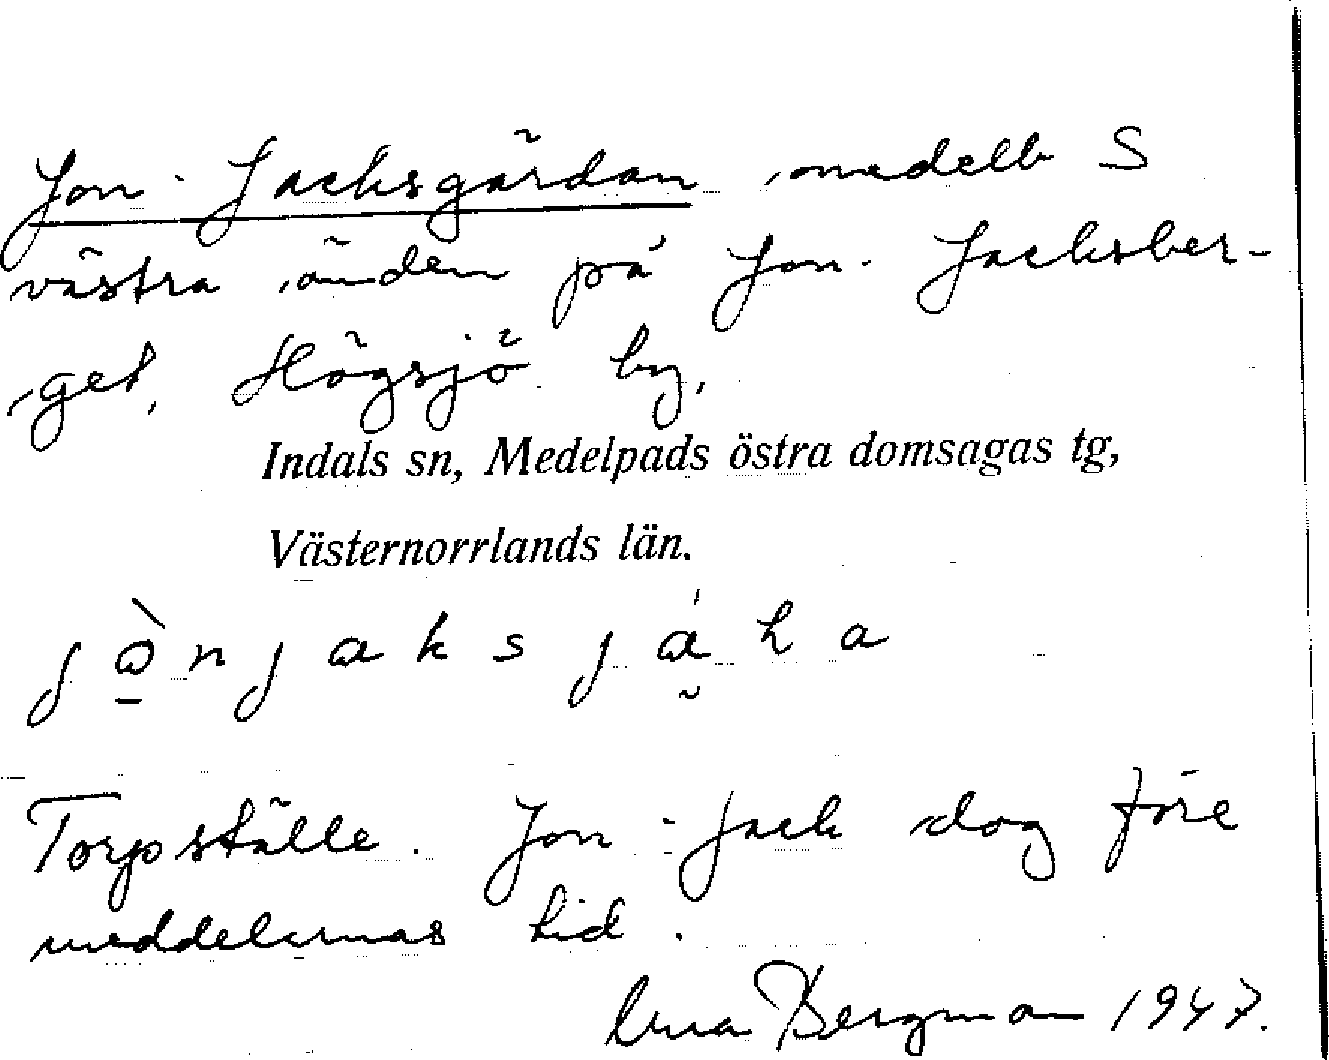 Jon-Jacksgärdan, omedelb S
västra änden på Jon-Jacksber-
get, Högsjö by,
Indals sn, Medelpads östra domsagas tg,
Västernorrlands län.
jạ̊njaksjäka
Torpställe. Jon-Jack dog före
meddelarnas tid.
Bergman 1947.